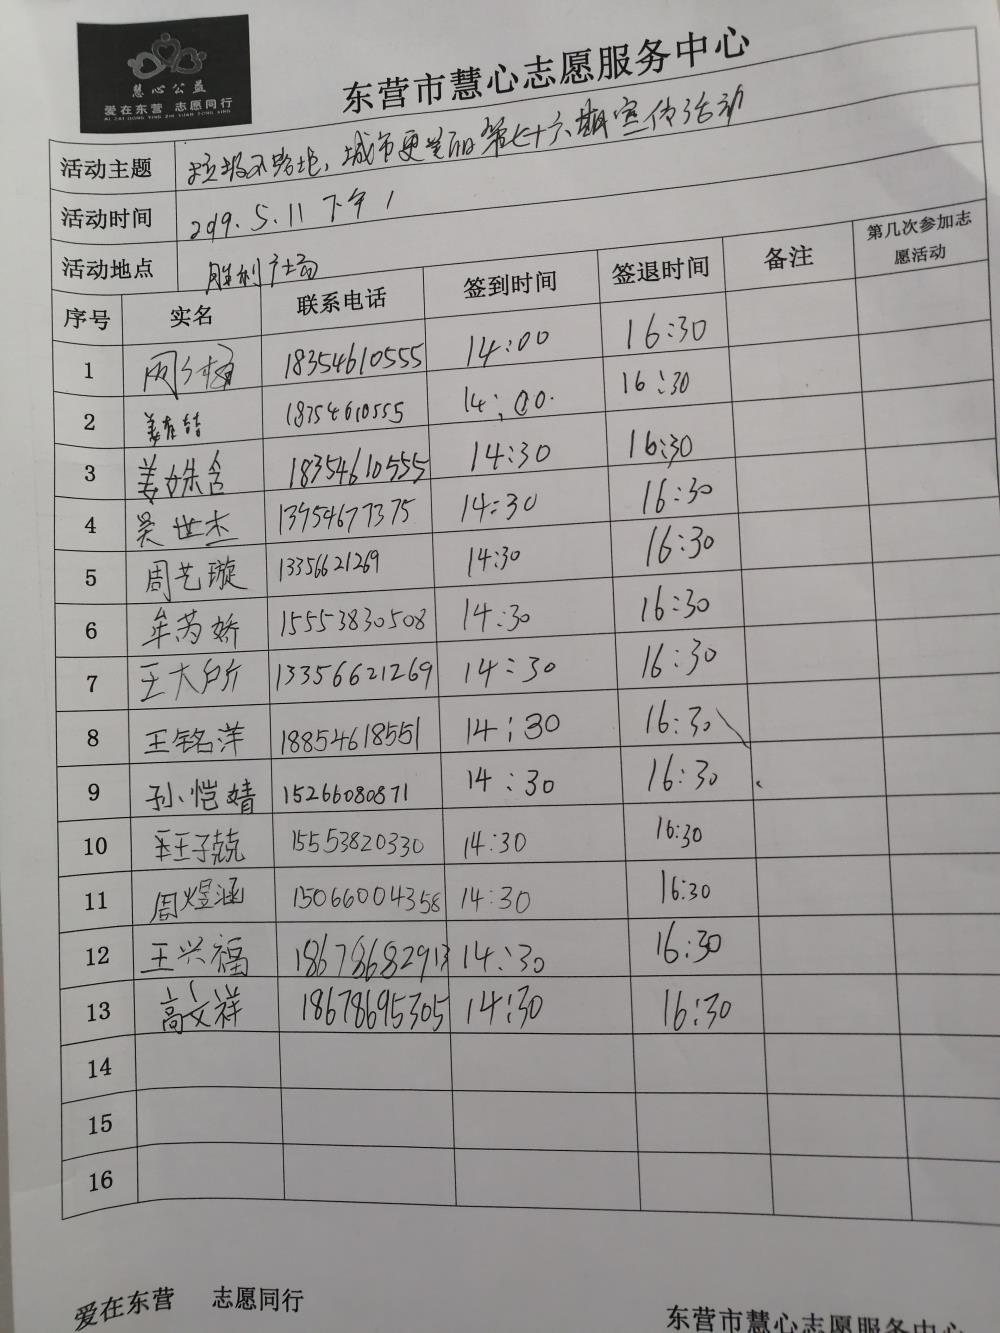 慧心公益
爱在东营 志愿同行
AI ZAI DONG YING ZHI YUAN TONG XING
东营市慧心志愿服务中心
活动主题 垃圾不落地，城市更美丽第七十六期宣传活动
活动时间 2019.5.11 下午
活动地点 胜利广场
序号 实名 联系电话 签到时间 签退时间 备注 第几次参加志愿活动
1 18354610555 14:00 16:30
2 姜有喆 18354610555 14:00 16:30
3 姜姝含 18354610555 14:30 16:30
4 吴世杰 13954677375 14:30 16:30
5 周艺璇 13356621269 14:30 16:30
6 牟芮娇 15553830508 14:30 16:30
7 王大 13356621269 14:30 16:30
8 王铭洋 18854618551 14:30 16:30
9 孙恺婧 15266080871 14:30 16:30
10 王子兢 15553820330 14:30 16:30
11 周煜涵 15066004358 14:30 16:30
12 王兴福 18678682913 14:30 16:30
13 高文祥 18678695305 14:30 16:30
14
15
16
爱在东营 志愿同行
东营市慧心志愿服务中心